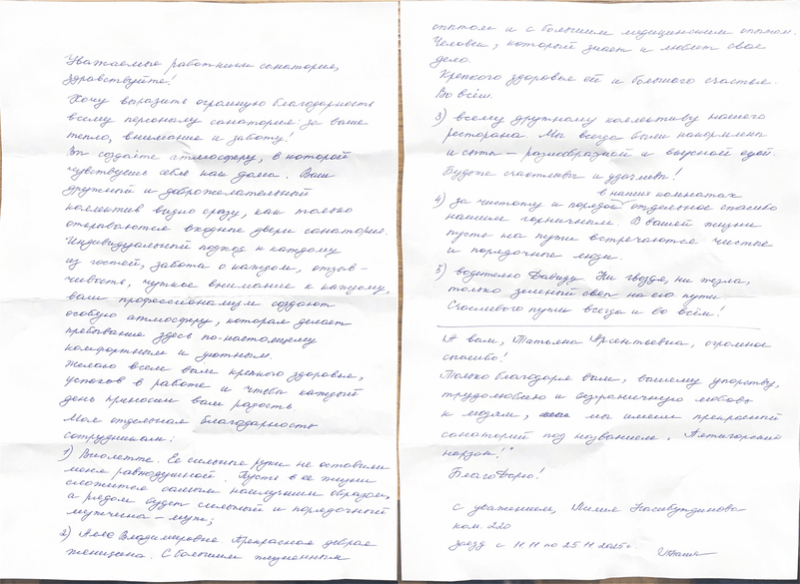 Уважаемые работники санатория,
здравствуйте!
Хочу выразить огромную благодарность
всему персоналу санатория за ваше
тепло, внимание и заботу!
Вы создаёте атмосферу, в которой
чувствуешь себя как дома. Ваш
дружный и доброжелательный
коллектив видно сразу, как только
открываются входные двери санатория.
Индивидуальный подход к каждому
из гостей, забота о каждом, отзыв-
чивость, чуткое внимание к каждому,
ваш профессионализм создают
особую атмосферу, которая делает
пребывание здесь по-настоящему
комфортным и уютным.
Желаю всем вам крепкого здоровья,
успехов в работе и чтобы каждый
день приносил вам радость.
Моя отдельная благодарность
сотрудникам:
1) Виолетте. Её сильные руки не оставили
меня равнодушной. Пусть в её жизни
сложится самым наилучшим образом,
а рядом будет сильный и порядочный
мужчина - муж;
2) Алле Владимировне. Прекрасная добрая
женщина. С большим жизненным
опытом и с большим медицинским опытом.
Человек, который знает и любит своё
дело.
Крепкого здоровья ей и большого счастья.
Во всём.
3) всему дружному коллективу нашего
ресторана. Мы всегда были накормлены
и сыты - разнообразной и вкусной едой.
Будьте счастливы и удачливы!
4) за чистоту и порядок в наших комнатах отдельное спасибо
нашим горничным. В вашей жизни
пусть на пути встречаются чистые
и порядочные люди.
5) водителю Давиду. Ни гвоздя, ни жезла,
только зелёный свет на его пути.
Счастливого пути всегда и во всём!
А вам, Татьяна Арсентьевна, огромное
спасибо!
Только благодаря вам, вашему упорству,
трудолюбию и безграничную любовь
к людям, мы имеем прекрасный
санаторий под названием "Пятигорский
нарзан!"
БлагоДарю!
С уважением, Лилия Насибутдинова
ком. 220
заезд с 11.11 по 25.11.2025г.